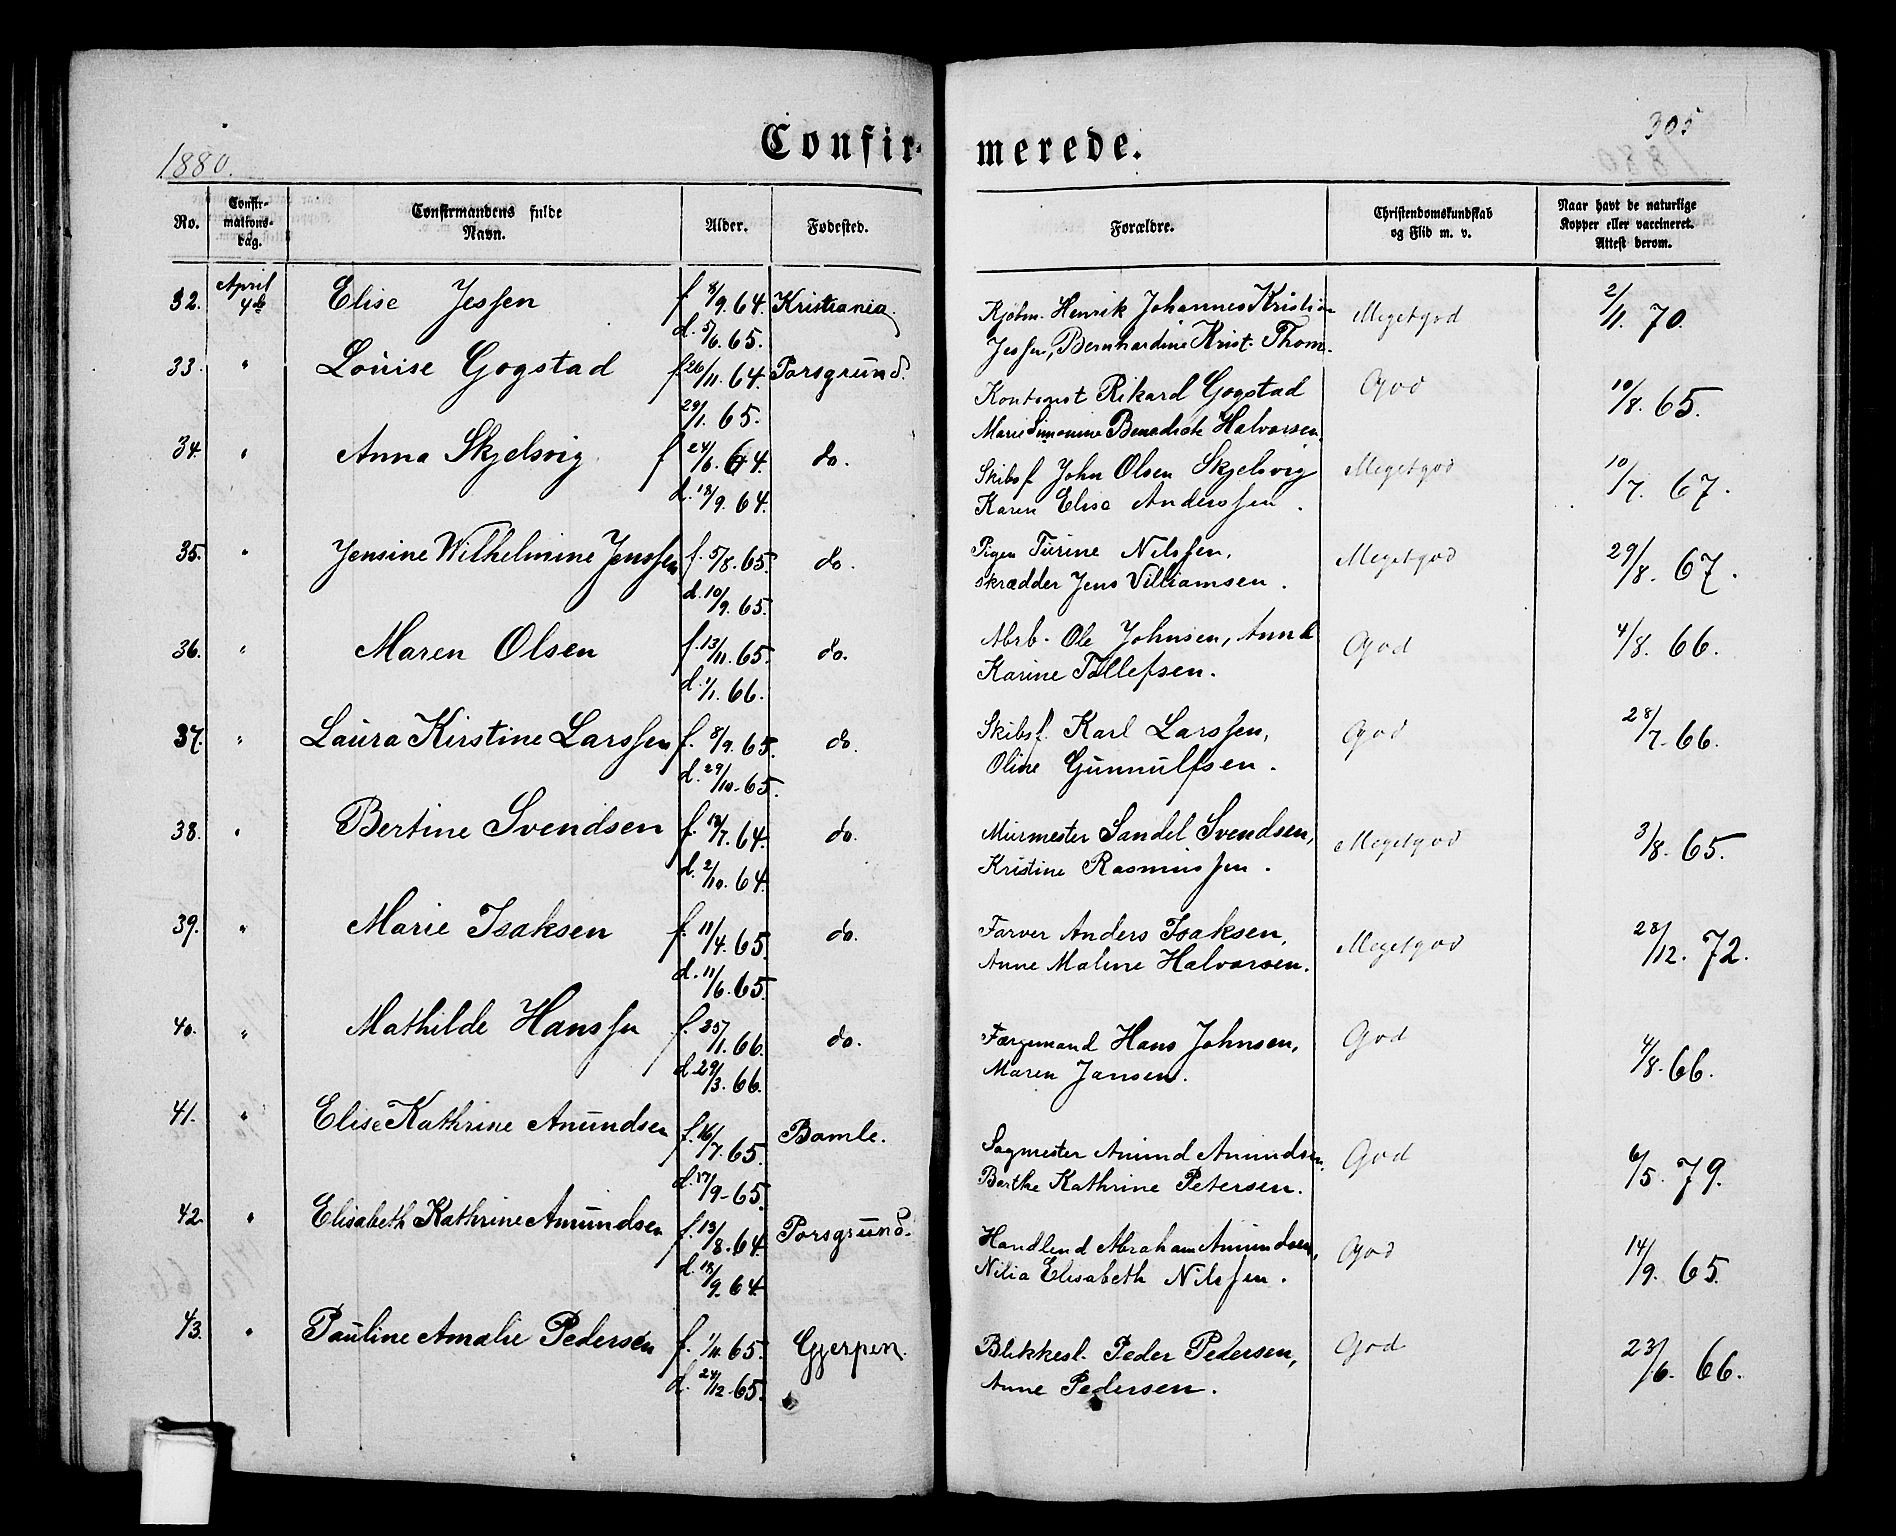 Confir- merede.
1880.
305
No. Confirmations-dag. Confirmandens fulde Navn. Alder. Fødested. Forældre. Christendomskundskab og Flid m. v. Naar havt de naturlige Kopper eller vaccineret. Attest derom.
32. April 4de Elise Jessen f. 8/9. 64. Kristiania. Kjøbm. Henrik Johannes Kristian Megetgod 2/11. 70.
d. 5/6. 65. Jessen, Bernhardine Krist. Thom.
33. " Louise Gogstad f. 26/11. 64. Porsgrund. Kontorist Rikard Gogstad God 19/8. 65.
29/1. 65. Marie Simonine Benedicte Halvorsen.
34. " Anna Skjelsvig f 24/6. 64. do. Skibsf. John Olsen Skjelsvig Megetgod 10/7. 67.
d. 18/9. 64. Karen Elise Anderssen.
35. " Jensine Wilhelmine Jenssen f. 5/8. 65. do. Pigen Turine Nilssen, Megetgod 29/8. 67.
d. 10/9. 65. Skrædder Jens Villiamsen.
36. " Maren Olsen f. 13/11. 65. do. Abrb. Ole Johnsen, Anne God 4/8. 66.
d. 1/1. 66. Karine Tollefsen.
37. " Laura Kirstine Larssen f. 8/9. 65. do. Skibsf. Karl Larssen, God 28/7. 66.
d. 29/10. 65. Oline Gunnulfsen.
38. " Bertine Svendsen f. 18/7. 64. do. Murmester Sandel Svendsen, Megetgod 3/8. 65.
d. 2/10. 64. Kristine Rasmussen.
39. " Marie Isaksen f. 11/4. 65. do. Farver Anders Isaksen, Megetgod 28/12. 72.
d. 11/6. 65. Anne Malene Halvorsen.
40. " Mathilde Hanssen f. 25/1. 66. do. Færgemand Hans Johnsen, God 4/8. 66.
d. 29/3. 66. Maren Jansen.
41. " Elise Kathrine Anundsen f. 16/7. 65. Bamle. Sagmester Anund Anundsen, God 6/5. 79.
d. 17/9. 65. Berthe Kathrine Petersen.
42. " Elisabeth Kathrine Amundsen f. 13/8. 64. Porsgrund. Handlend Abraham Amundsen, God 14/9. 65.
d. 18/9. 64. Nilia Elisabeth Nilssen.
43. " Pauline Amalie Pedersen f. 1/11. 65. Gjerpen. Blikkesl. Peder Pedersen, God 23/6. 66.
d. 24/12. 65. Anne Pedersen.